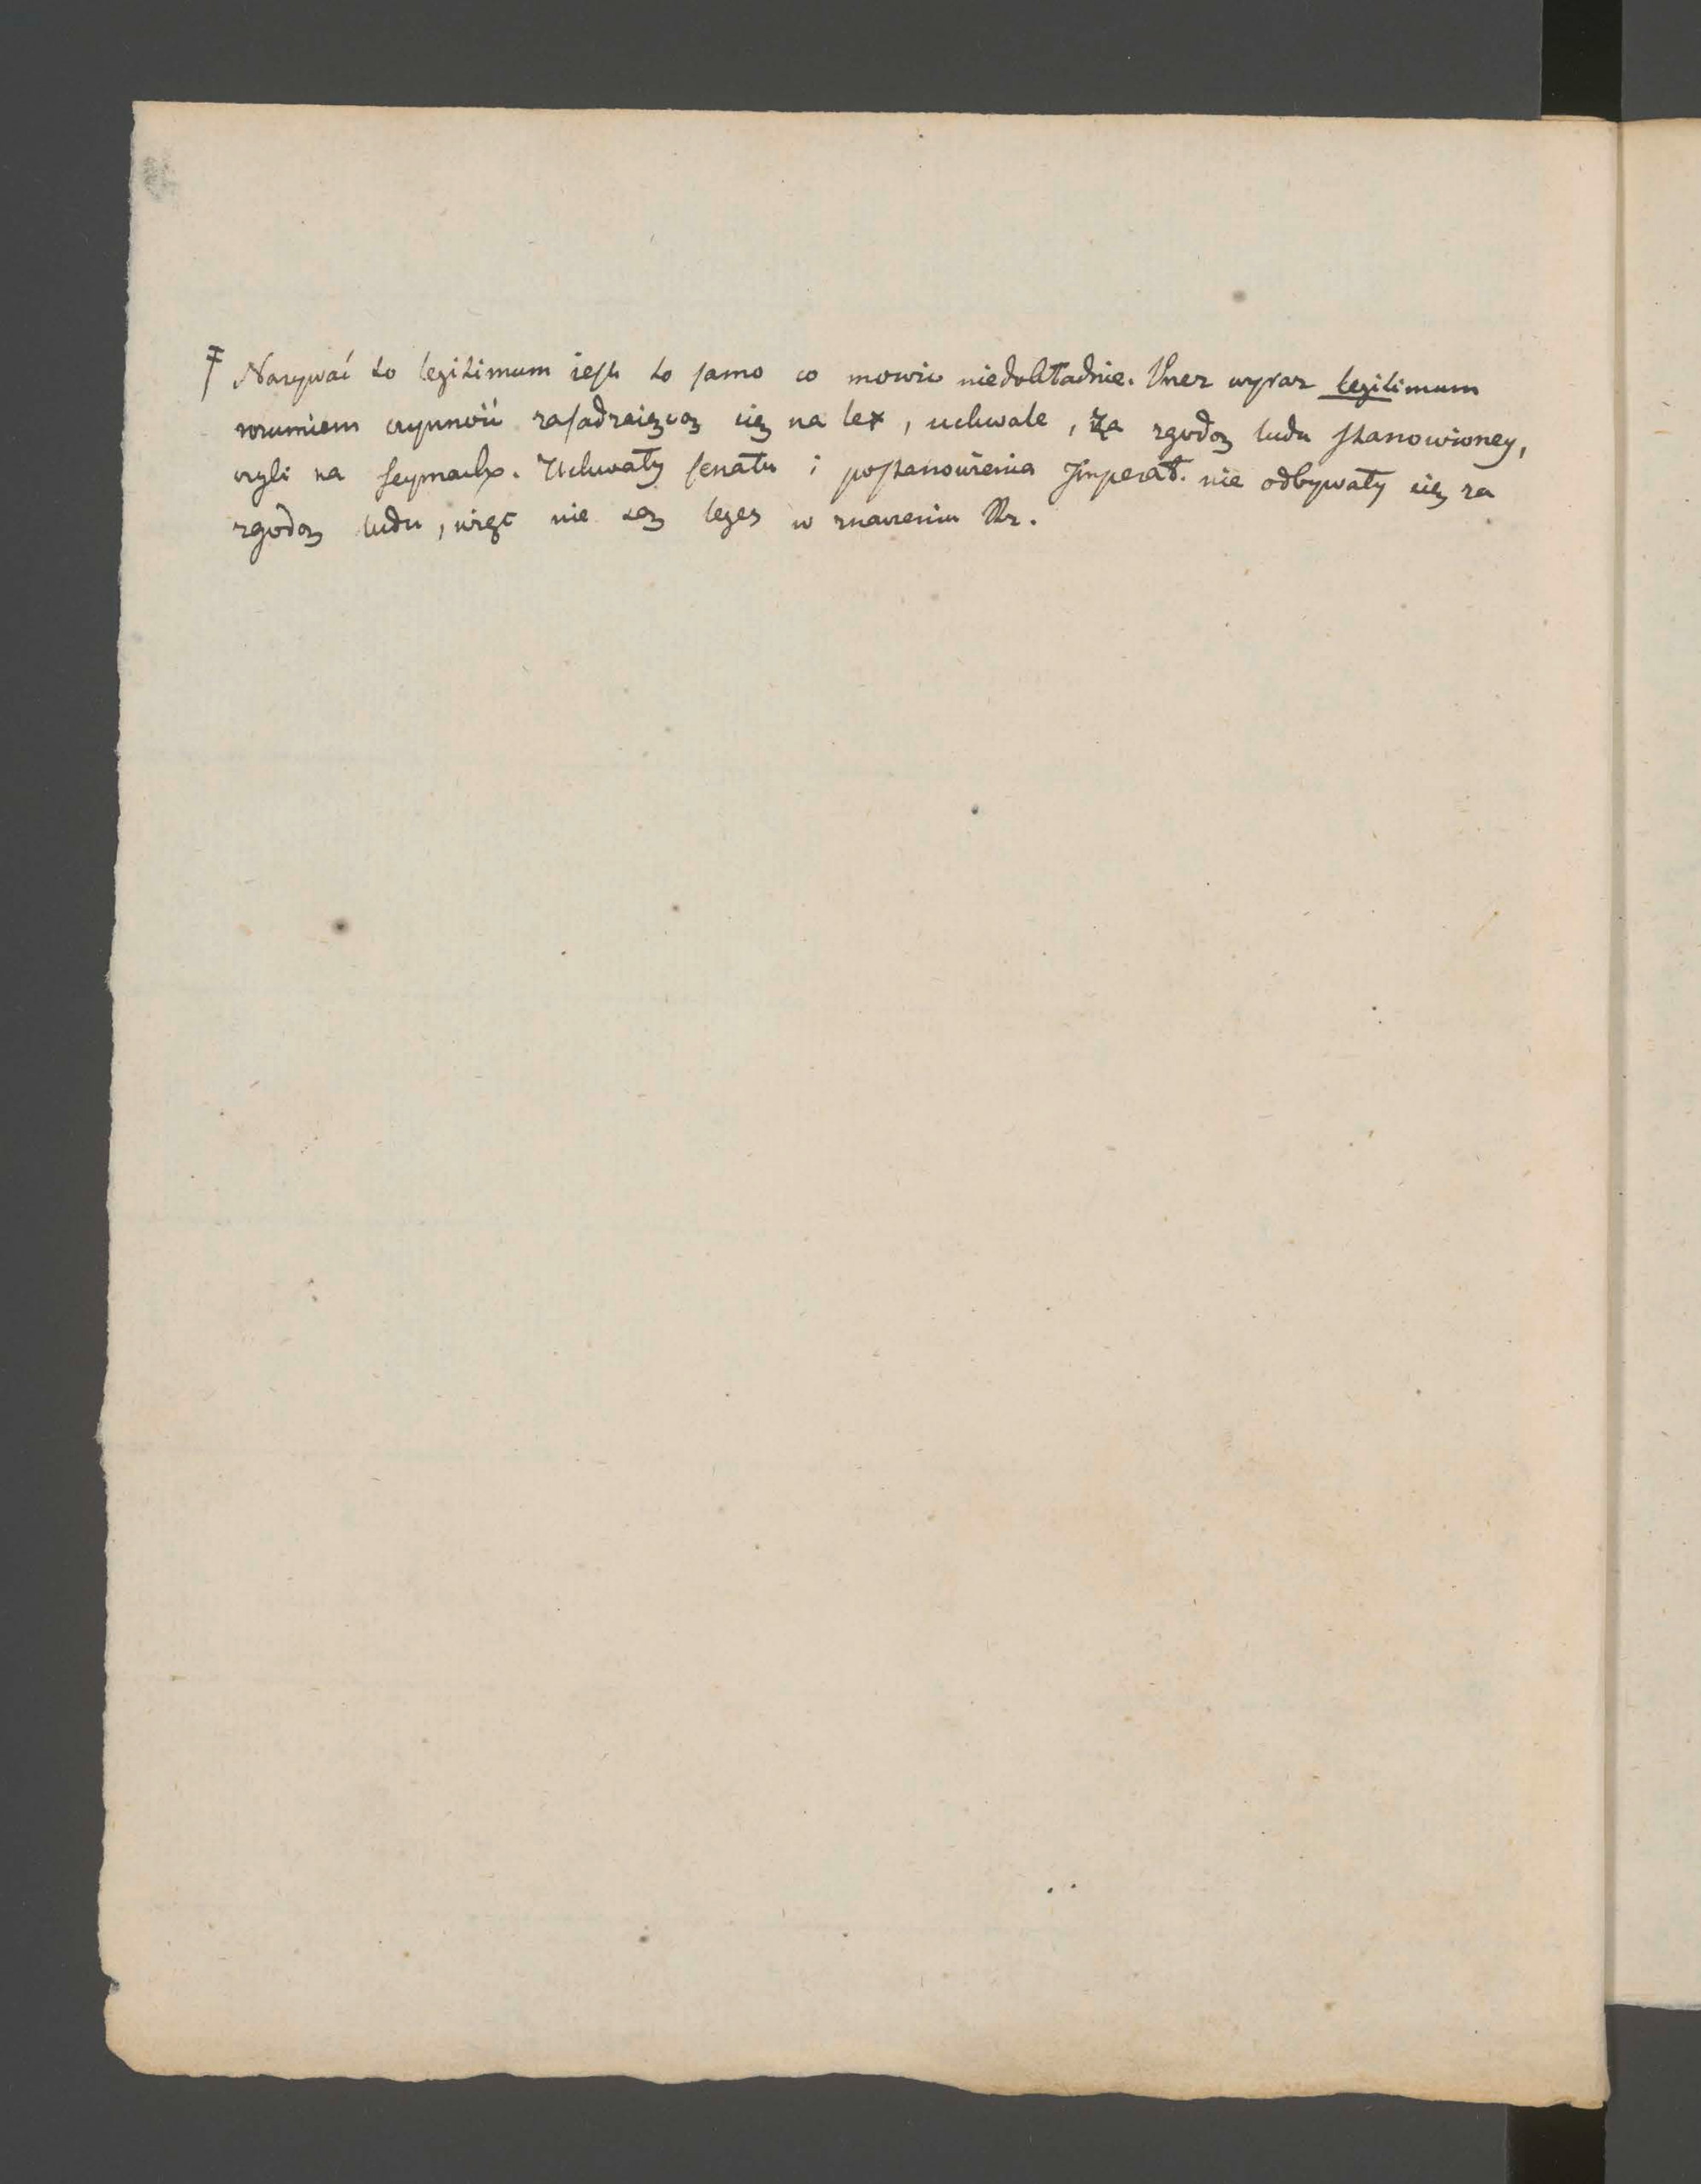 ‡ Nazywać to legitimum iest to samo co mowić niedokładnie. Przez wyraz legitimum
rozumiem czynność zasadzaiącą się na lex, uchwale, za zgodą ludu stanowioney,
czyli na seymach. Uchwały senatu i postanowienia Imperat. nie odbywały się za
zgodą ludu, więc nie są leges w znaczeniu